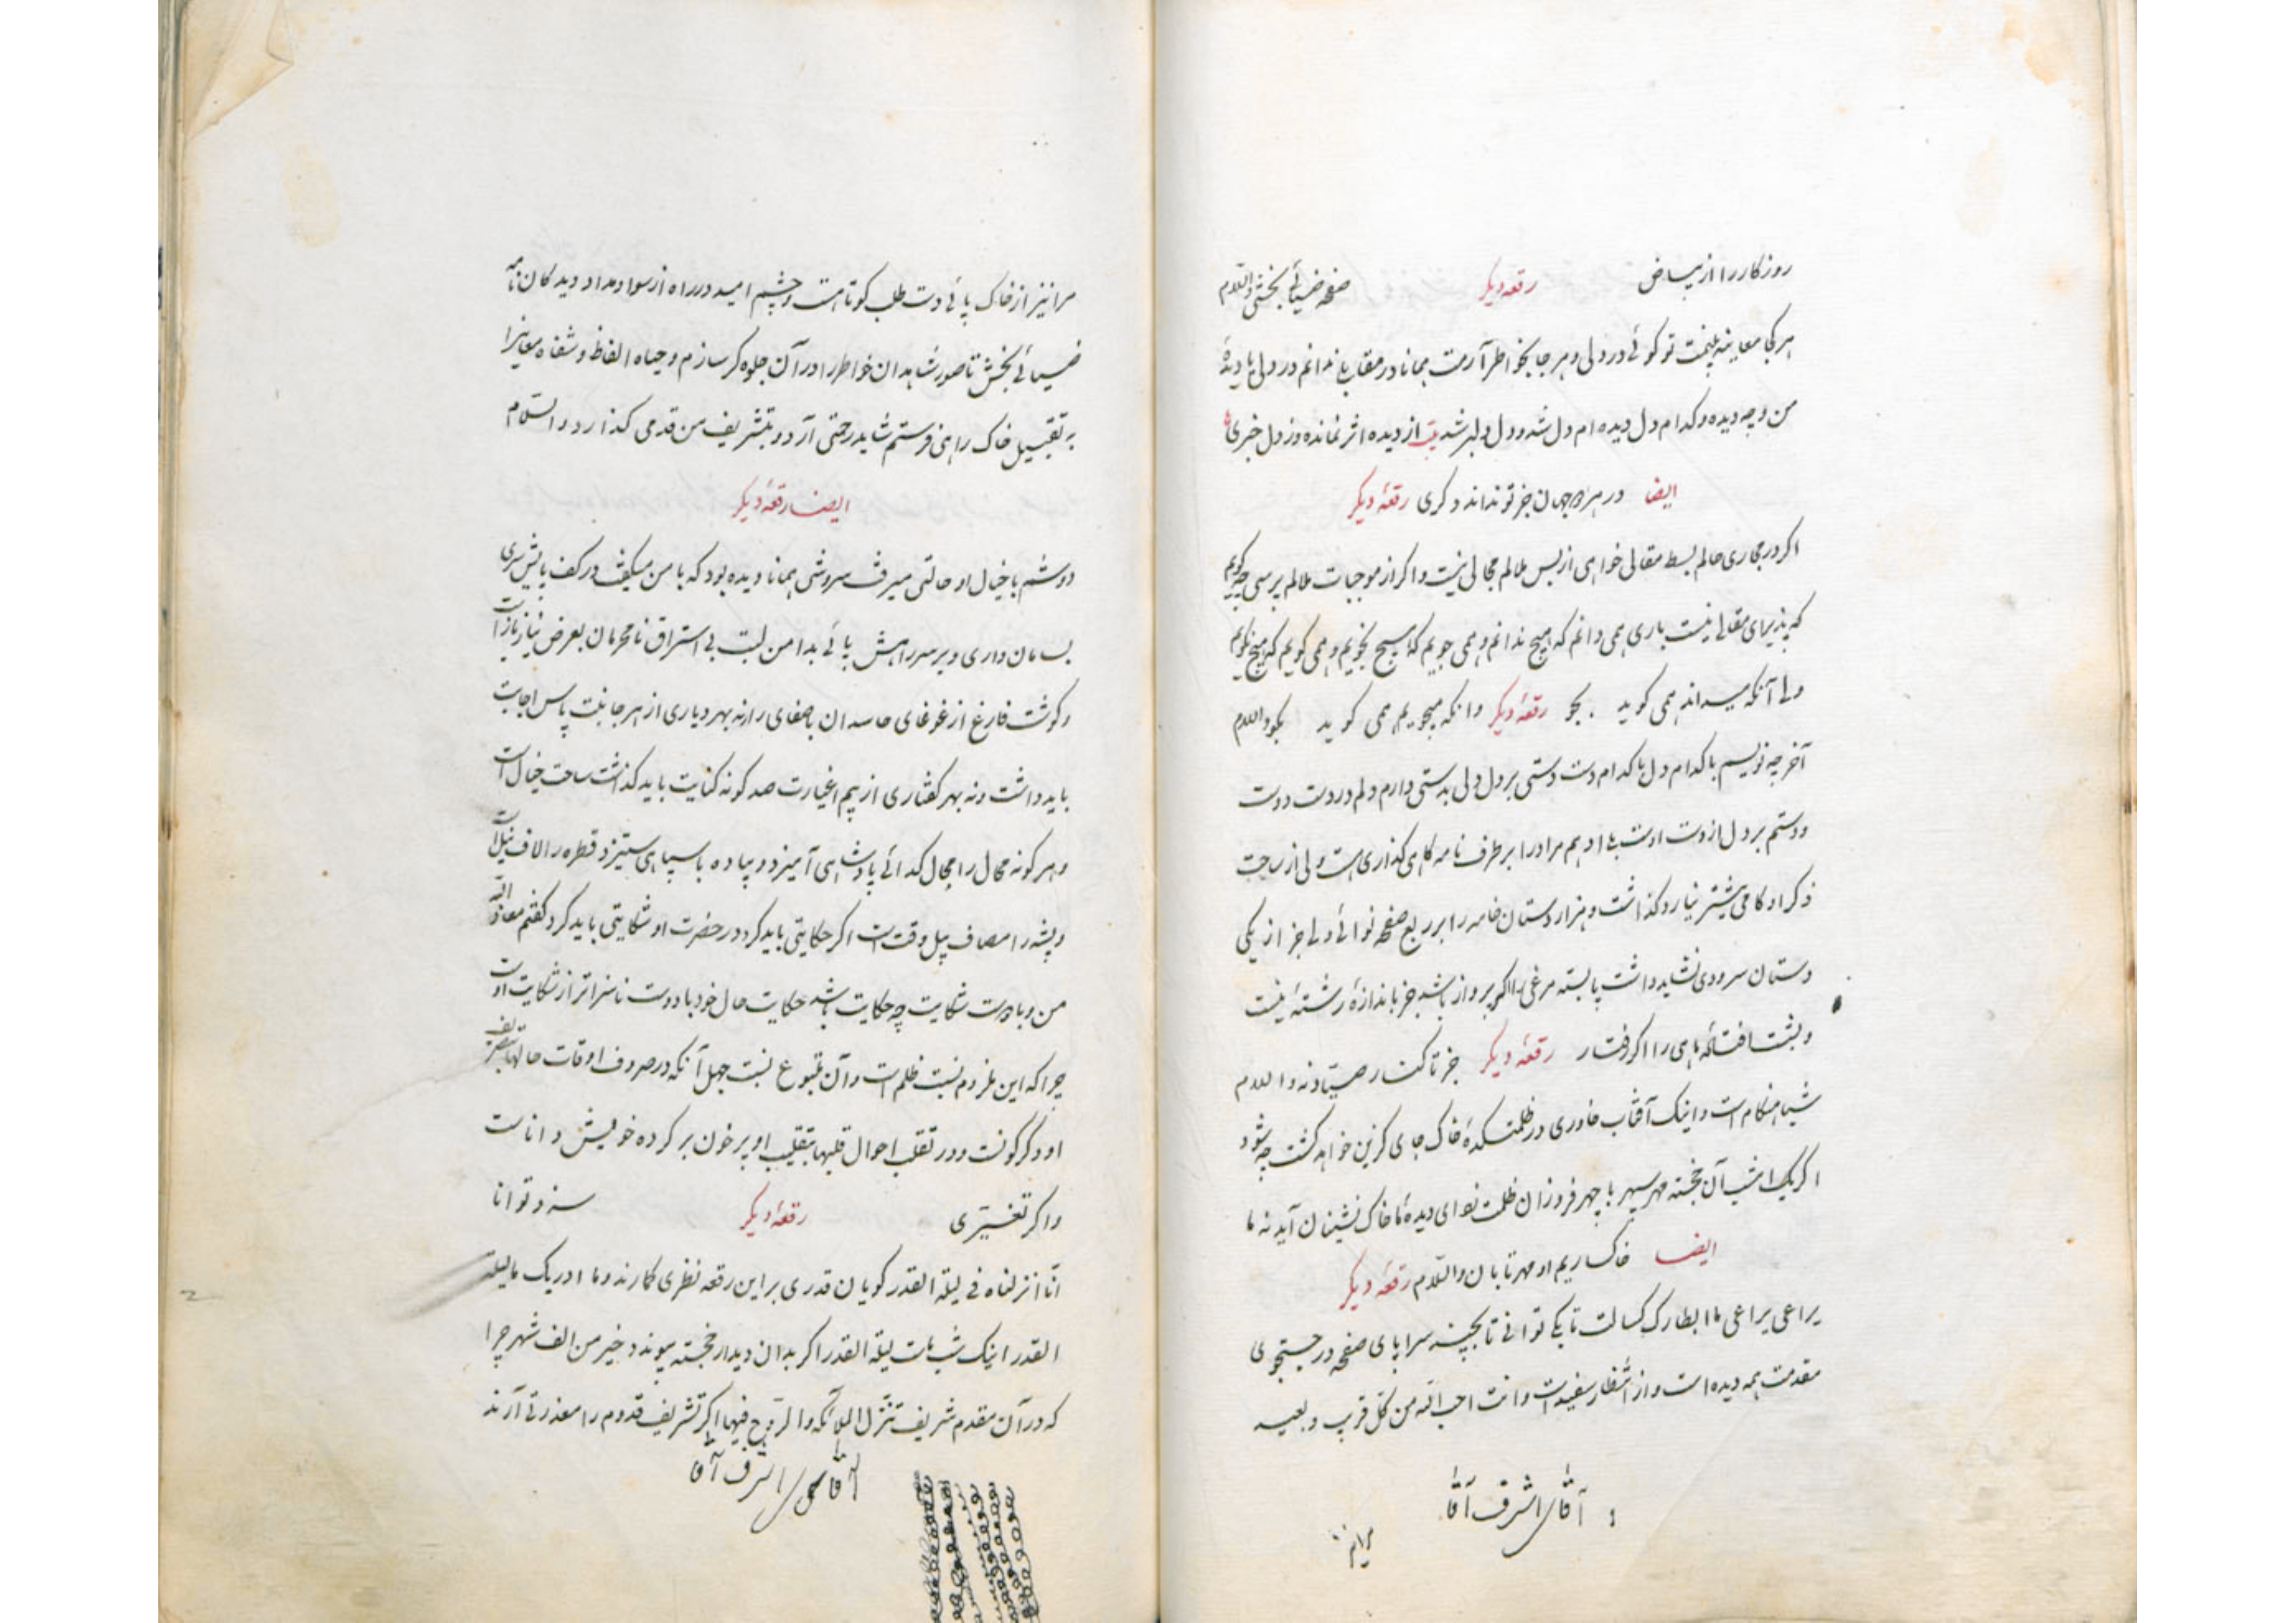 روزکار را از بیاض رقعه دیکر صفحه ضیائی بخشی والسلام
هر کجا معاینه بینمت تو کوئی در دلی و هر جا بخواطر آرمت همانا در مقابلی ندانم در دلی یا دیدهٔ
من و چه دیده و کدام دل دیده ام دل شد و دل دلبر شد بیت از دیده اثر نمانده وز دل خبری
ایضا در هر دو جهان جز تو نداند دکری رقعهٔ دیکر
اکر در مجاری حالم بسط مقالی خواهی از بس ملالم مجالی نیست و اکر از موجبات ملالم پرسی چه کویم
که پذیرای مقالی نیست باری همی دانم که هیچ ندانم و همی جویم که هیچ نجویم و همی کویم که هیچ نکویم
ولی آنکه میداند همی کوید بجو رقعهٔ دیکر وانکه میجویم همی کوید بکو والسلام
آخر چه نویسم با کدام دل با کدام دست دستی بر دل دلی بدستی دارم دلم در دست دوست
و دستم بر دل از دست اوست بلا او هم مر او را بر طرف نامه کاهی کذاری هست ولی از ساحت
ذکر او کامی بیشتر نیارد کذاشت و هزار دستان خامه را بر ربع صفحه نوائی ولی جز از یکی
دستان سرودی نشاید داشت پا بسته مرغی را اکر پرواز باشد جز باندازهٔ رشتهٔ نیست
و بشست افتاده ماهی را اکر رفتار رقعهٔ دیکر جز تا کنار صیاد نه والسلام
شباهنکام است و اینک آفتاب خاوری در ظلمتکدهٔ خاک جای کزین خواهد کشت چه شود
اکر یک امشب آن خجسته مهر سپهر با چهر فروزان ظلمت زدای دیدهٔ ما خاک نشینان آید نه ما
ایضا خاکساریم او مهر تابان والسلام رقعهٔ دیکر
یراعی یراعی ما ابطارک کسالت تا بکی توانی تا بچند سراپای صفحه در جستجوی
مقدمت همه دیده است و از انتظار سفید است و انت احب الله من کل قریب و بعید
آقای اشرف آقا
مرا نیز از خاک پائی دست طلب کوتاهست و چشم امید در راه از سواد مداد دیدکان نامه
ضیائی بخش تا صور شاهدان خواطر را در آن جلوه کر سازم و جباه الفاظ و شفاه معانی را
به تقبیل خاک راهی فرستم شاید رحمتی آرد و بتشریف من قدمی کذارد والسلام
ایضا رقعهٔ دیکر
دوشم با خیال او حالتی میرفت سروشی همانا دیده بود که با من میکفت در کف پایش سری
بسامان داری و بر سر راهش پائی بدامن لبت بی استراق نامحرمان بعرض نیاز باز است
و کوشت فارغ از غوغای حاسدان باصغای راز نه بهر دیاری از هر جانبت پاس اجابت
باید داشت و نه بهر کفتاری از بیم اغیارت صد کونه کنایت باید کذاشت ساحت خیال است
و هر کونه محال را مجال کدائی با پادشاهی آمیزد و پیاده با سپاهی ستیزد قطره را لاف نیل است
و پشه را مصاف پیل وقت است اکر حکایتی باید کرد و در حضرت او شکایتی باید کرد کفتم معاذ الله
من و با دوست شکایت چه حکایت باشد حکایت حال خود با دوست ناسزاتر از شکایت اوست
چرا که این ملزوم نسبت ظلم است و آن متبوع نسبت جهل آنکه در صروف اوقات حالتها بتصریف
او دکرکونست و در تقلب احوال قلبها بتقلیب او پر خون بر کرده خویش داناست
و اکر تغییری رقعهٔ دیکر سزد توانا
انا انزلناه فی لیلة القدر کویان قدری بر این رقعه نظری کمارند و ما ادریک ما لیلة
القدر اینک شب ماست لیلة القدر اکر بدان دیدار خجسته پیوندد خیر من الف شهر چرا
که در آن مقدم شریف تنزل الملائکه و الروح فیها اکر تشریف قدوم را معذرتی آرند
آقای اشرف آقا